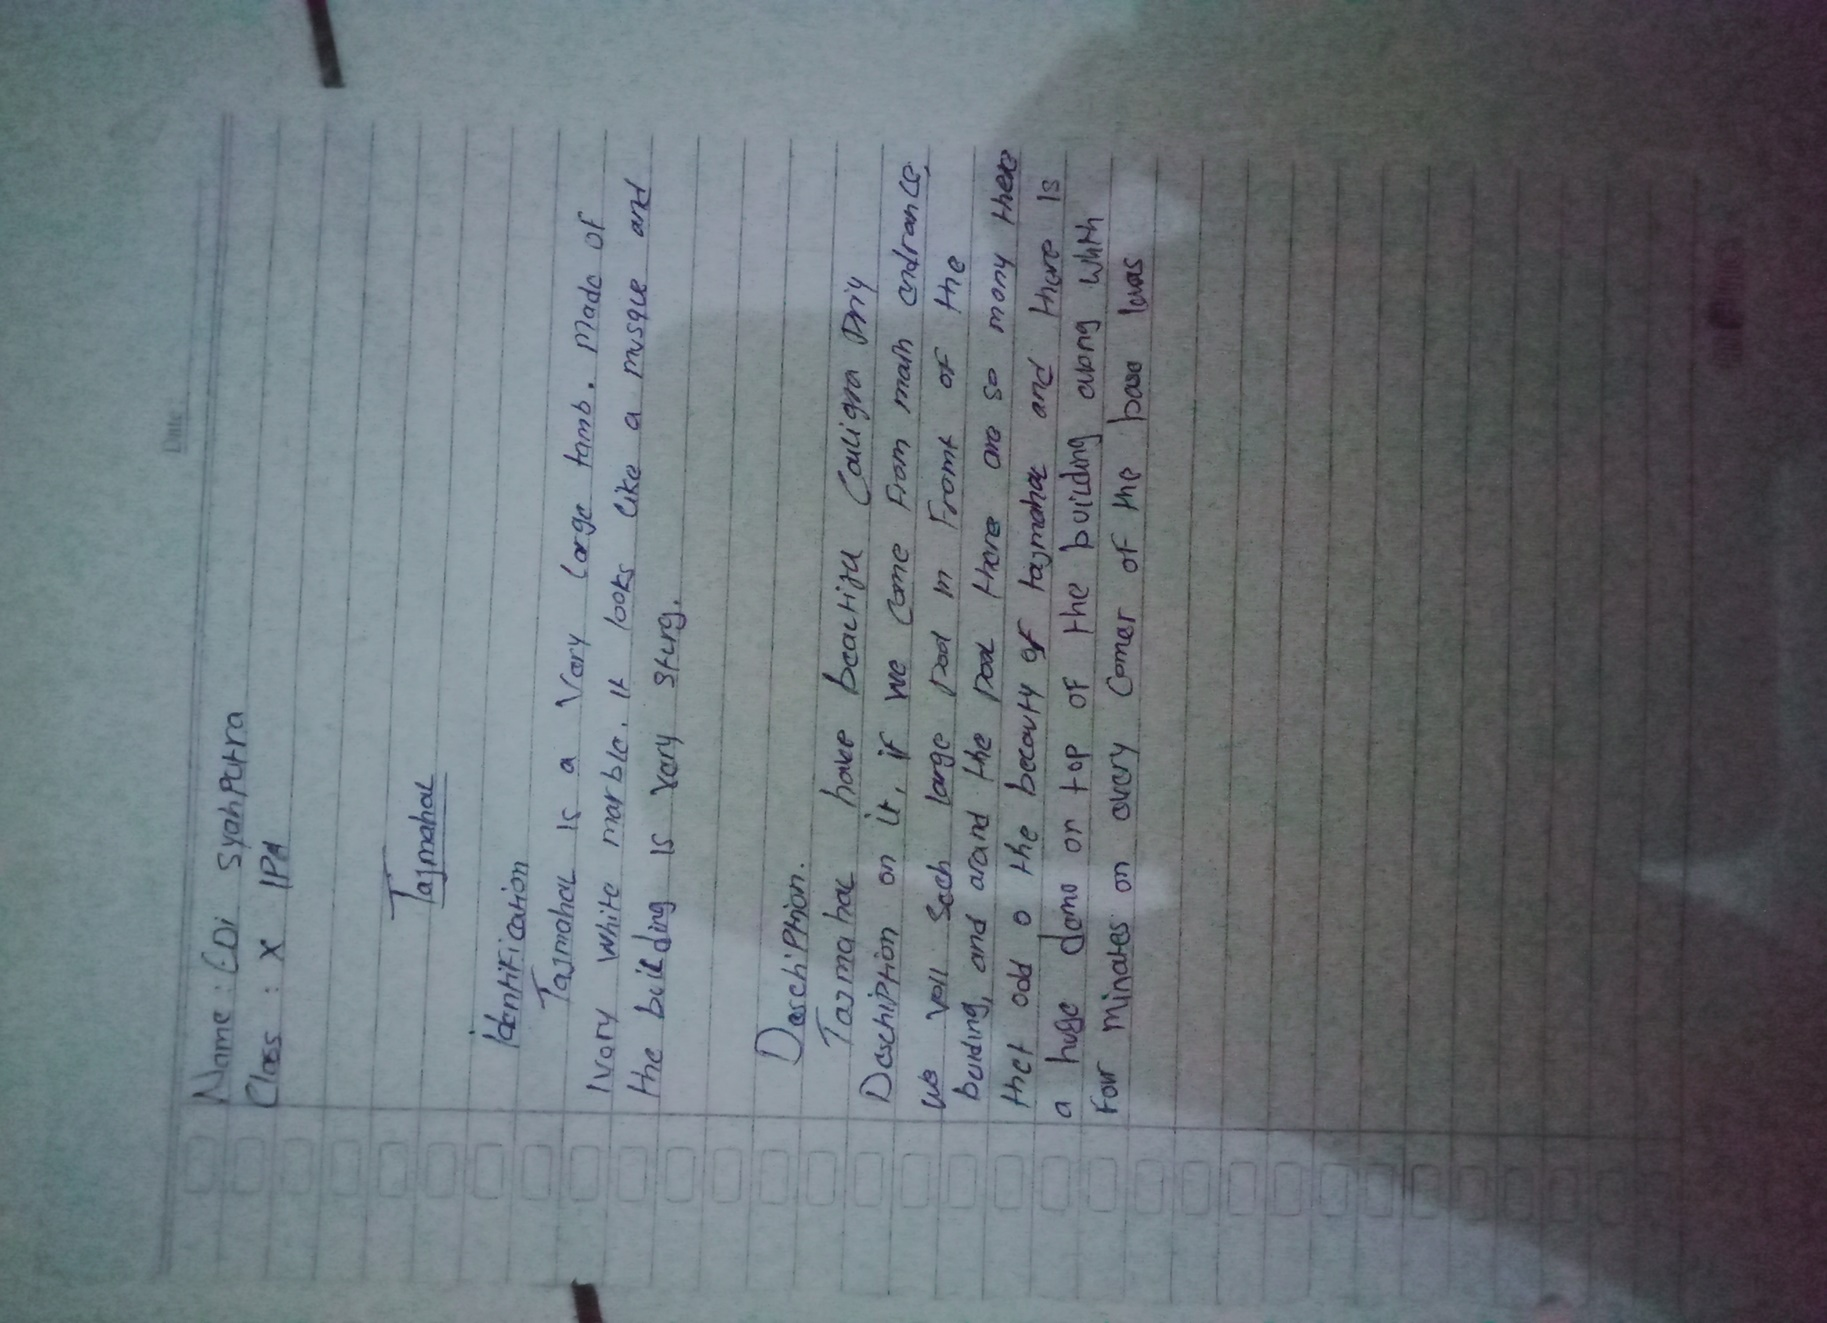 Date
Name : EDi syahputra
Class : X IPA
Tajmahal
Identification
Tajmahal is a Vary large tamb. Made of
Ivory white marble. It looks like a musque and
the building is very
Daschiption.
Tajmahal have Calligra Dhiy
Daschiption on it, if we come From main endrance,
we voll Sach large pool in Fromt of the
building, and arand the pool there are so mony there
thet odd o the beeauty of tajmahal and there is
a huge dome on top of the building along whth
Four minates on avery Comer of the base luas